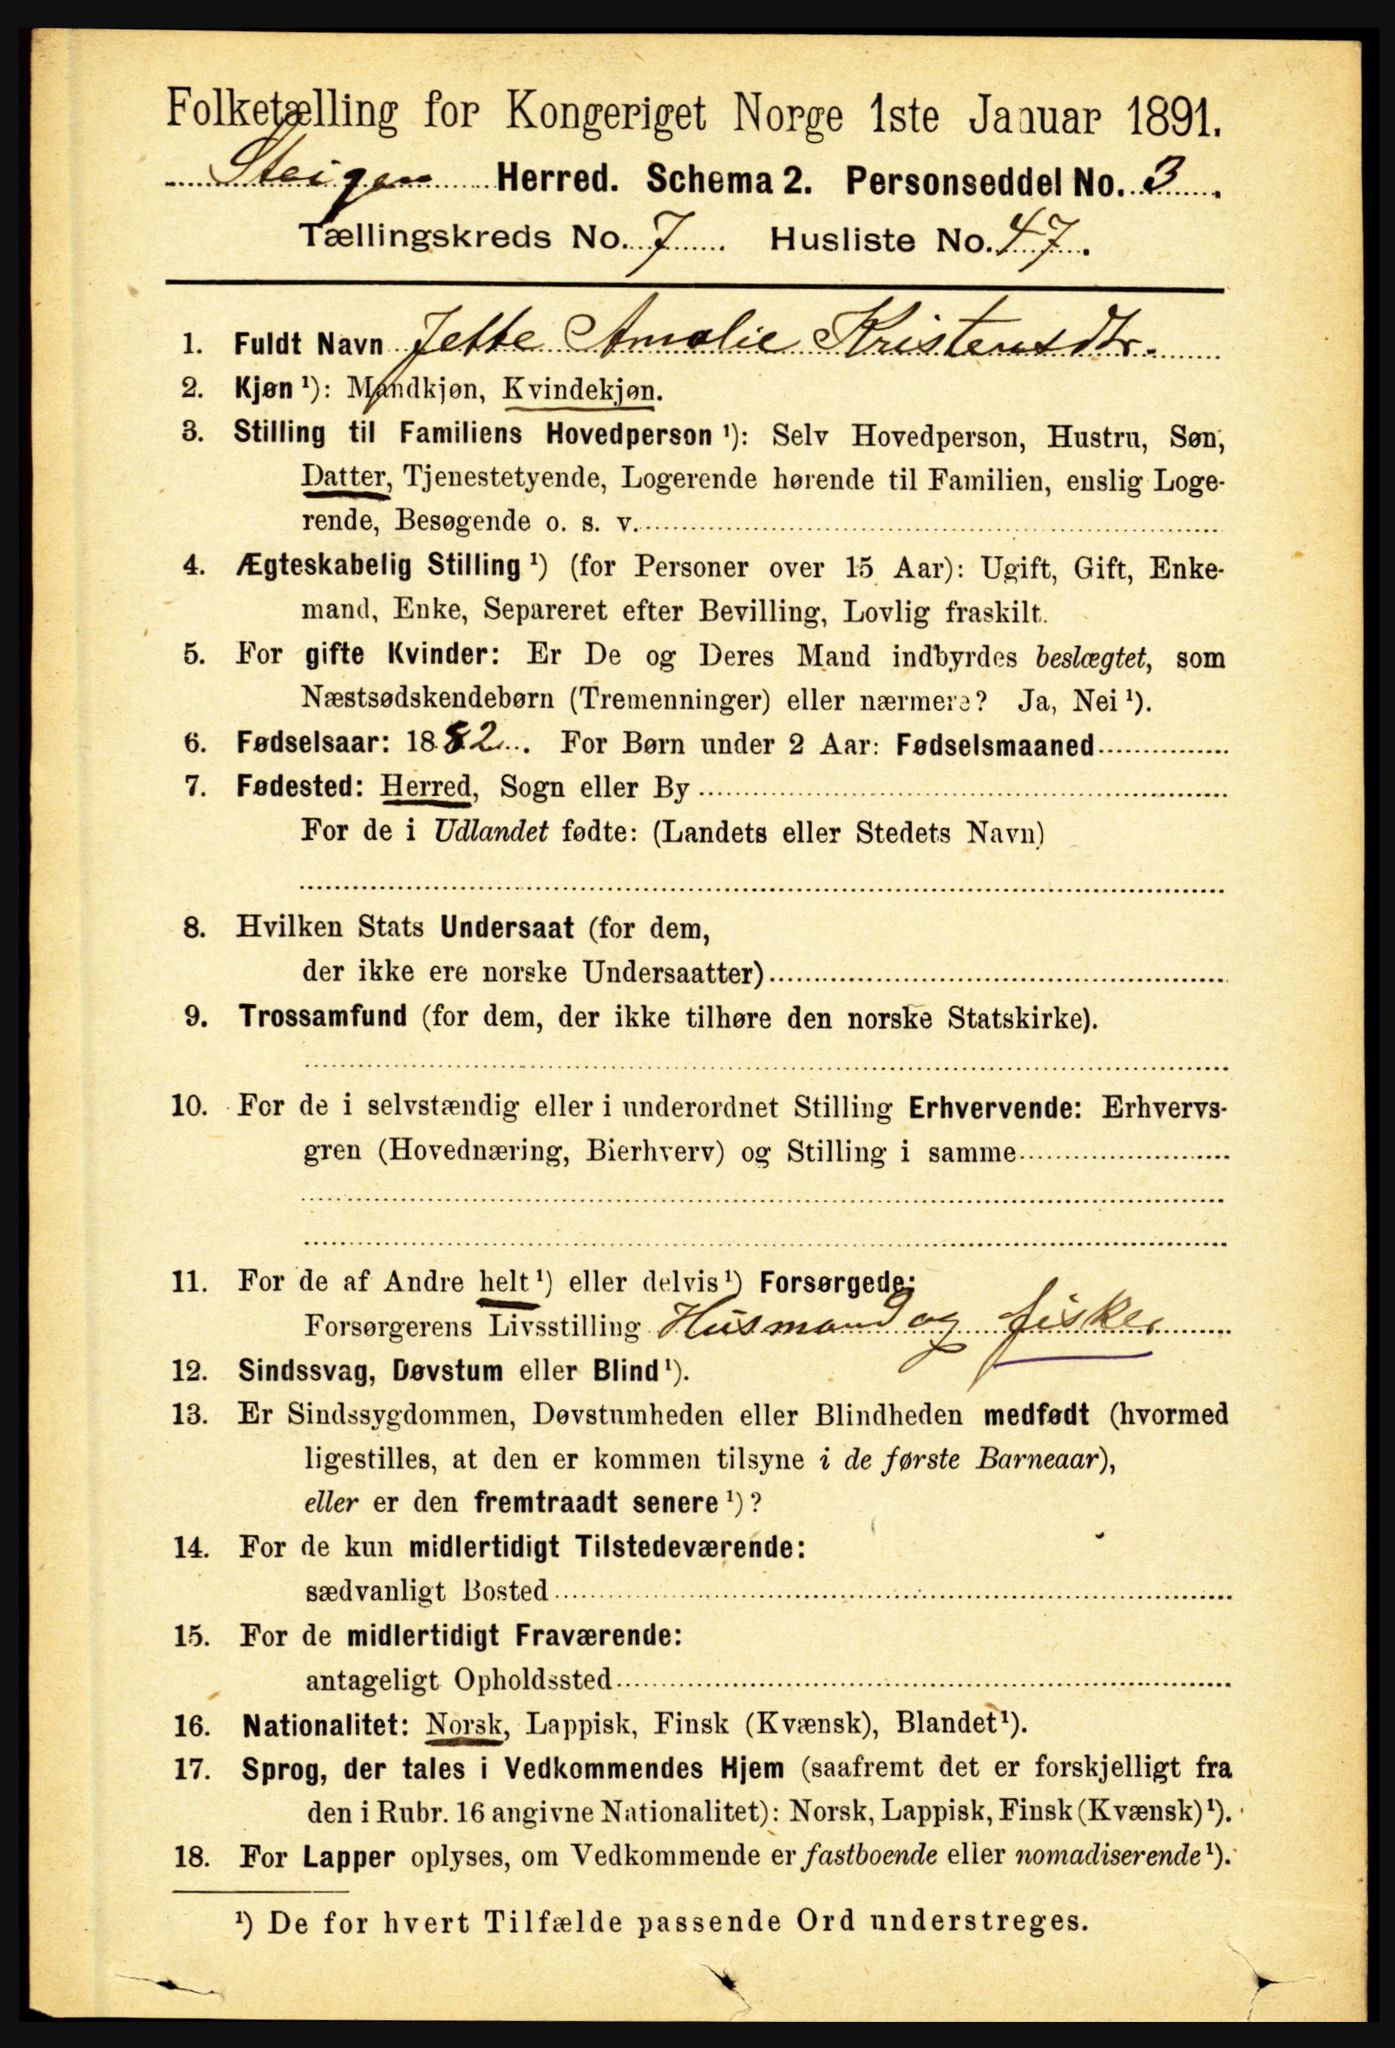 Folketælling for Kongeriget Norge 1ste Januar 1891.
Steigen Herred. Schema 2. Personseddel No. 3.
Tællingskreds No. 7 Husliste No. 47.
1. Fuldt Navn Jette Amalie Kristensdtr.
2. Kjøn ¹): Mandkjøn, Kvindekjøn.
3. Stilling til Familiens Hovedperson ¹): Selv Hovedperson, Hustru, Søn,
Datter, Tjenestetyende, Logerende hørende til Familien, enslig Loge-
rende, Besøgende o. s. v.
4. Ægteskabelig Stilling ¹) (for Personer over 15 Aar): Ugift, Gift, Enke-
mand, Enke, Separeret efter Bevilling, Lovlig fraskilt.
5. For gifte Kvinder: Er De og Deres Mand indbyrdes beslægtet, som
Næstsødskendebørn (Tremenninger) eller nærmere? Ja, Nei ¹).
6. Fødselsaar: 1882. For Børn under 2 Aar: Fødselsmaaned
7. Fødested: Herred, Sogn eller By
For de i Udlandet fødte: (Landets eller Stedets Navn)
8. Hvilken Stats Undersaat (for dem,
der ikke ere norske Undersaatter)
9. Trossamfund (for dem, der ikke tilhøre den norske Statskirke).
10. For de i selvstændig eller i underordnet Stilling Erhvervende: Erhvervs-
gren (Hovednæring, Bierhverv) og Stilling i samme
11. For de af Andre helt ¹) eller delvis ¹) Forsørgede:
Forsørgerens Livsstilling Husmand og fisker
12. Sindssvag, Døvstum eller Blind ¹).
13. Er Sindssygdommen, Døvstumheden eller Blindheden medfødt (hvormed
ligestilles, at den er kommen tilsyne i de første Barneaar),
eller er den fremtraadt senere ¹)?
14. For de kun midlertidigt Tilstedeværende:
sædvanligt Bosted
15. For de midlertidigt Fraværende:
antageligt Opholdssted
16. Nationalitet: Norsk, Lappisk, Finsk (Kvænsk), Blandet ¹).
17. Sprog, der tales i Vedkommendes Hjem (saafremt det er forskjelligt fra
den i Rubr. 16 angivne Nationalitet): Norsk, Lappisk, Finsk (Kvænsk) ¹).
18. For Lapper oplyses, om Vedkommende er fastboende eller nomadiserende ¹).
¹) De for hvert Tilfælde passende Ord understreges.